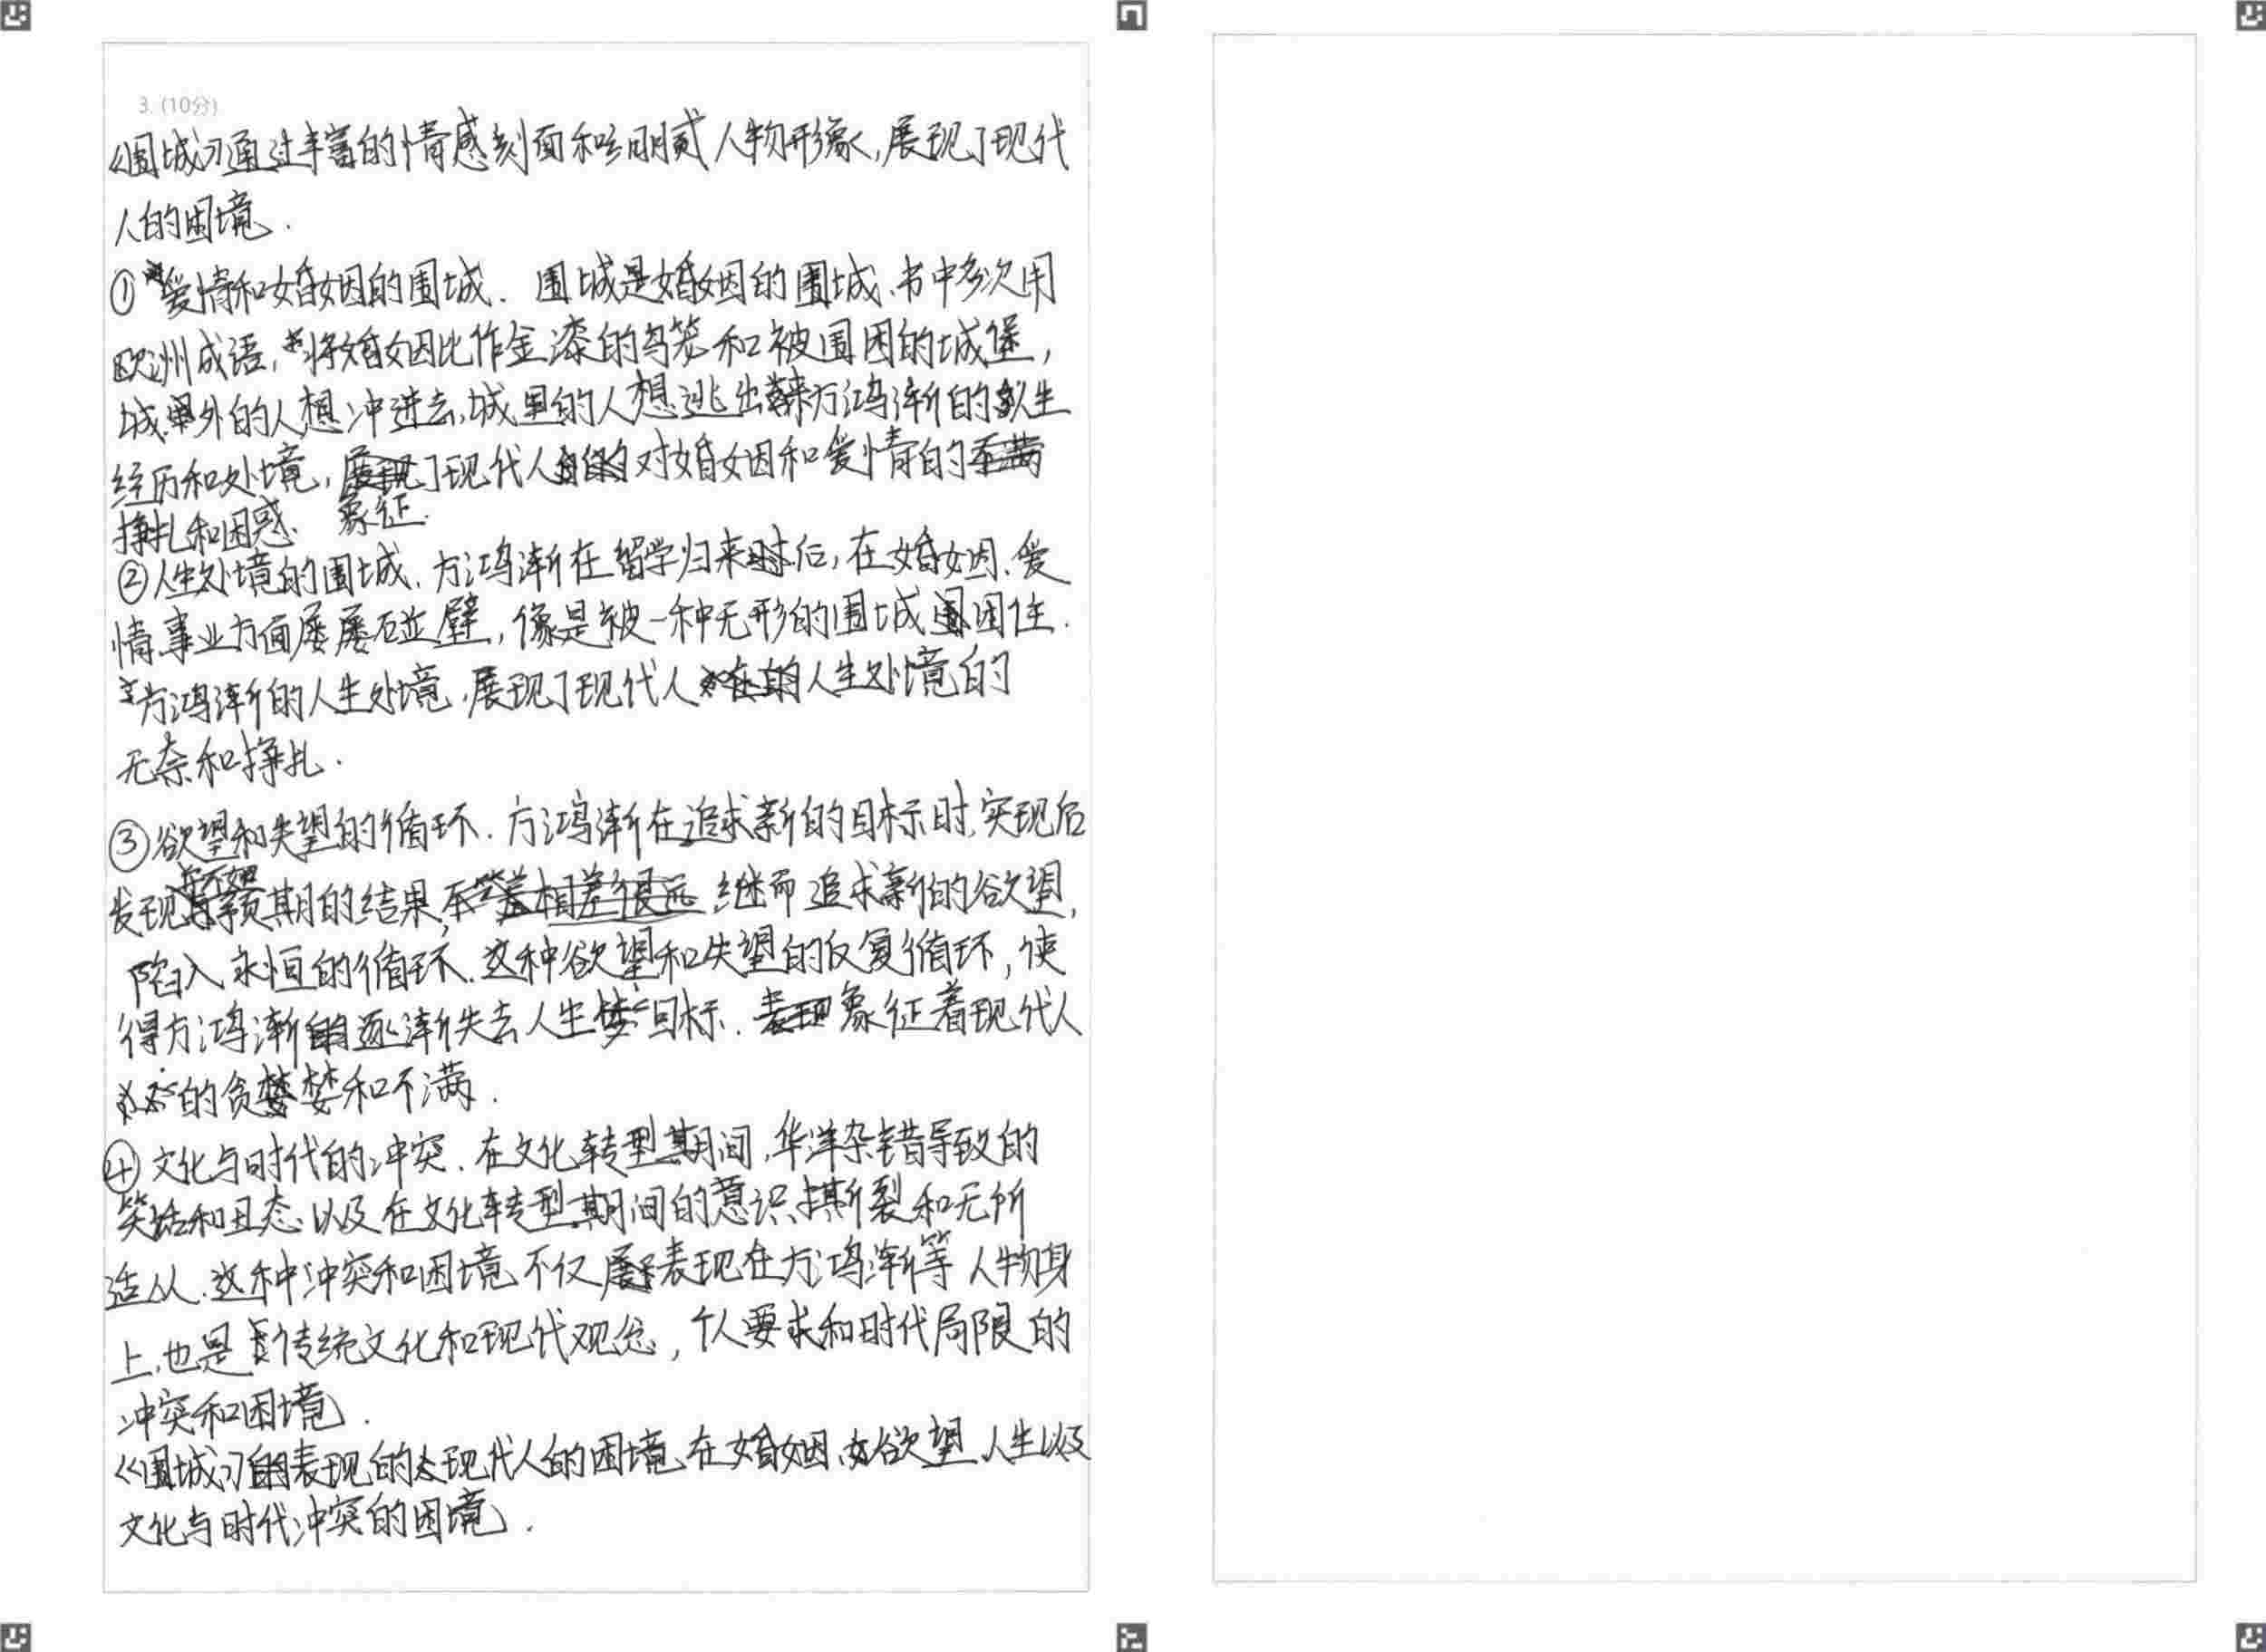 3. (10分)
《围城》通过丰富的情感刻画和细腻人物形象,展现了现代
人的困境.
①爱情和婚姻的围城. 围城是婚姻的围城、书中多次用
欧洲成语,将婚姻比作金漆的鸟笼和被围困的城堡,
城外的人想冲进去,城里的人想逃出来方鸿渐的人生
经历和处境,象征了现代人对婚姻和爱情的
挣扎和困惑.
②人生处境的围城. 方鸿渐在留学归来后,在婚姻、爱
情、事业方面屡屡碰壁,像是被一种无形的围城困住.
方鸿渐的人生处境,展现了现代人人生处境的
无奈和挣扎.
③欲望和失望的循环. 方鸿渐在追求新的目标时,实现后
发现并不如预期的结果,继而追求新的欲望,
陷入永恒的循环.这种欲望和失望的反复循环,使
得方鸿渐逐渐失去人生目标. 象征着现代人
的贪婪和不满.
④文化与时代的冲突. 在文化转型期间,华洋杂错导致的
笑话和丑态、以及在文化转型期间的意识撕裂和无所
适从.这种冲突和困境不仅表现在方鸿渐等人物身
上,也是传统文化和现代观念,个人要求和时代局限的
冲突和困境.
《围城》表现的现代人的困境、在婚姻、欲望、人生以及
文化与时代冲突的困境.